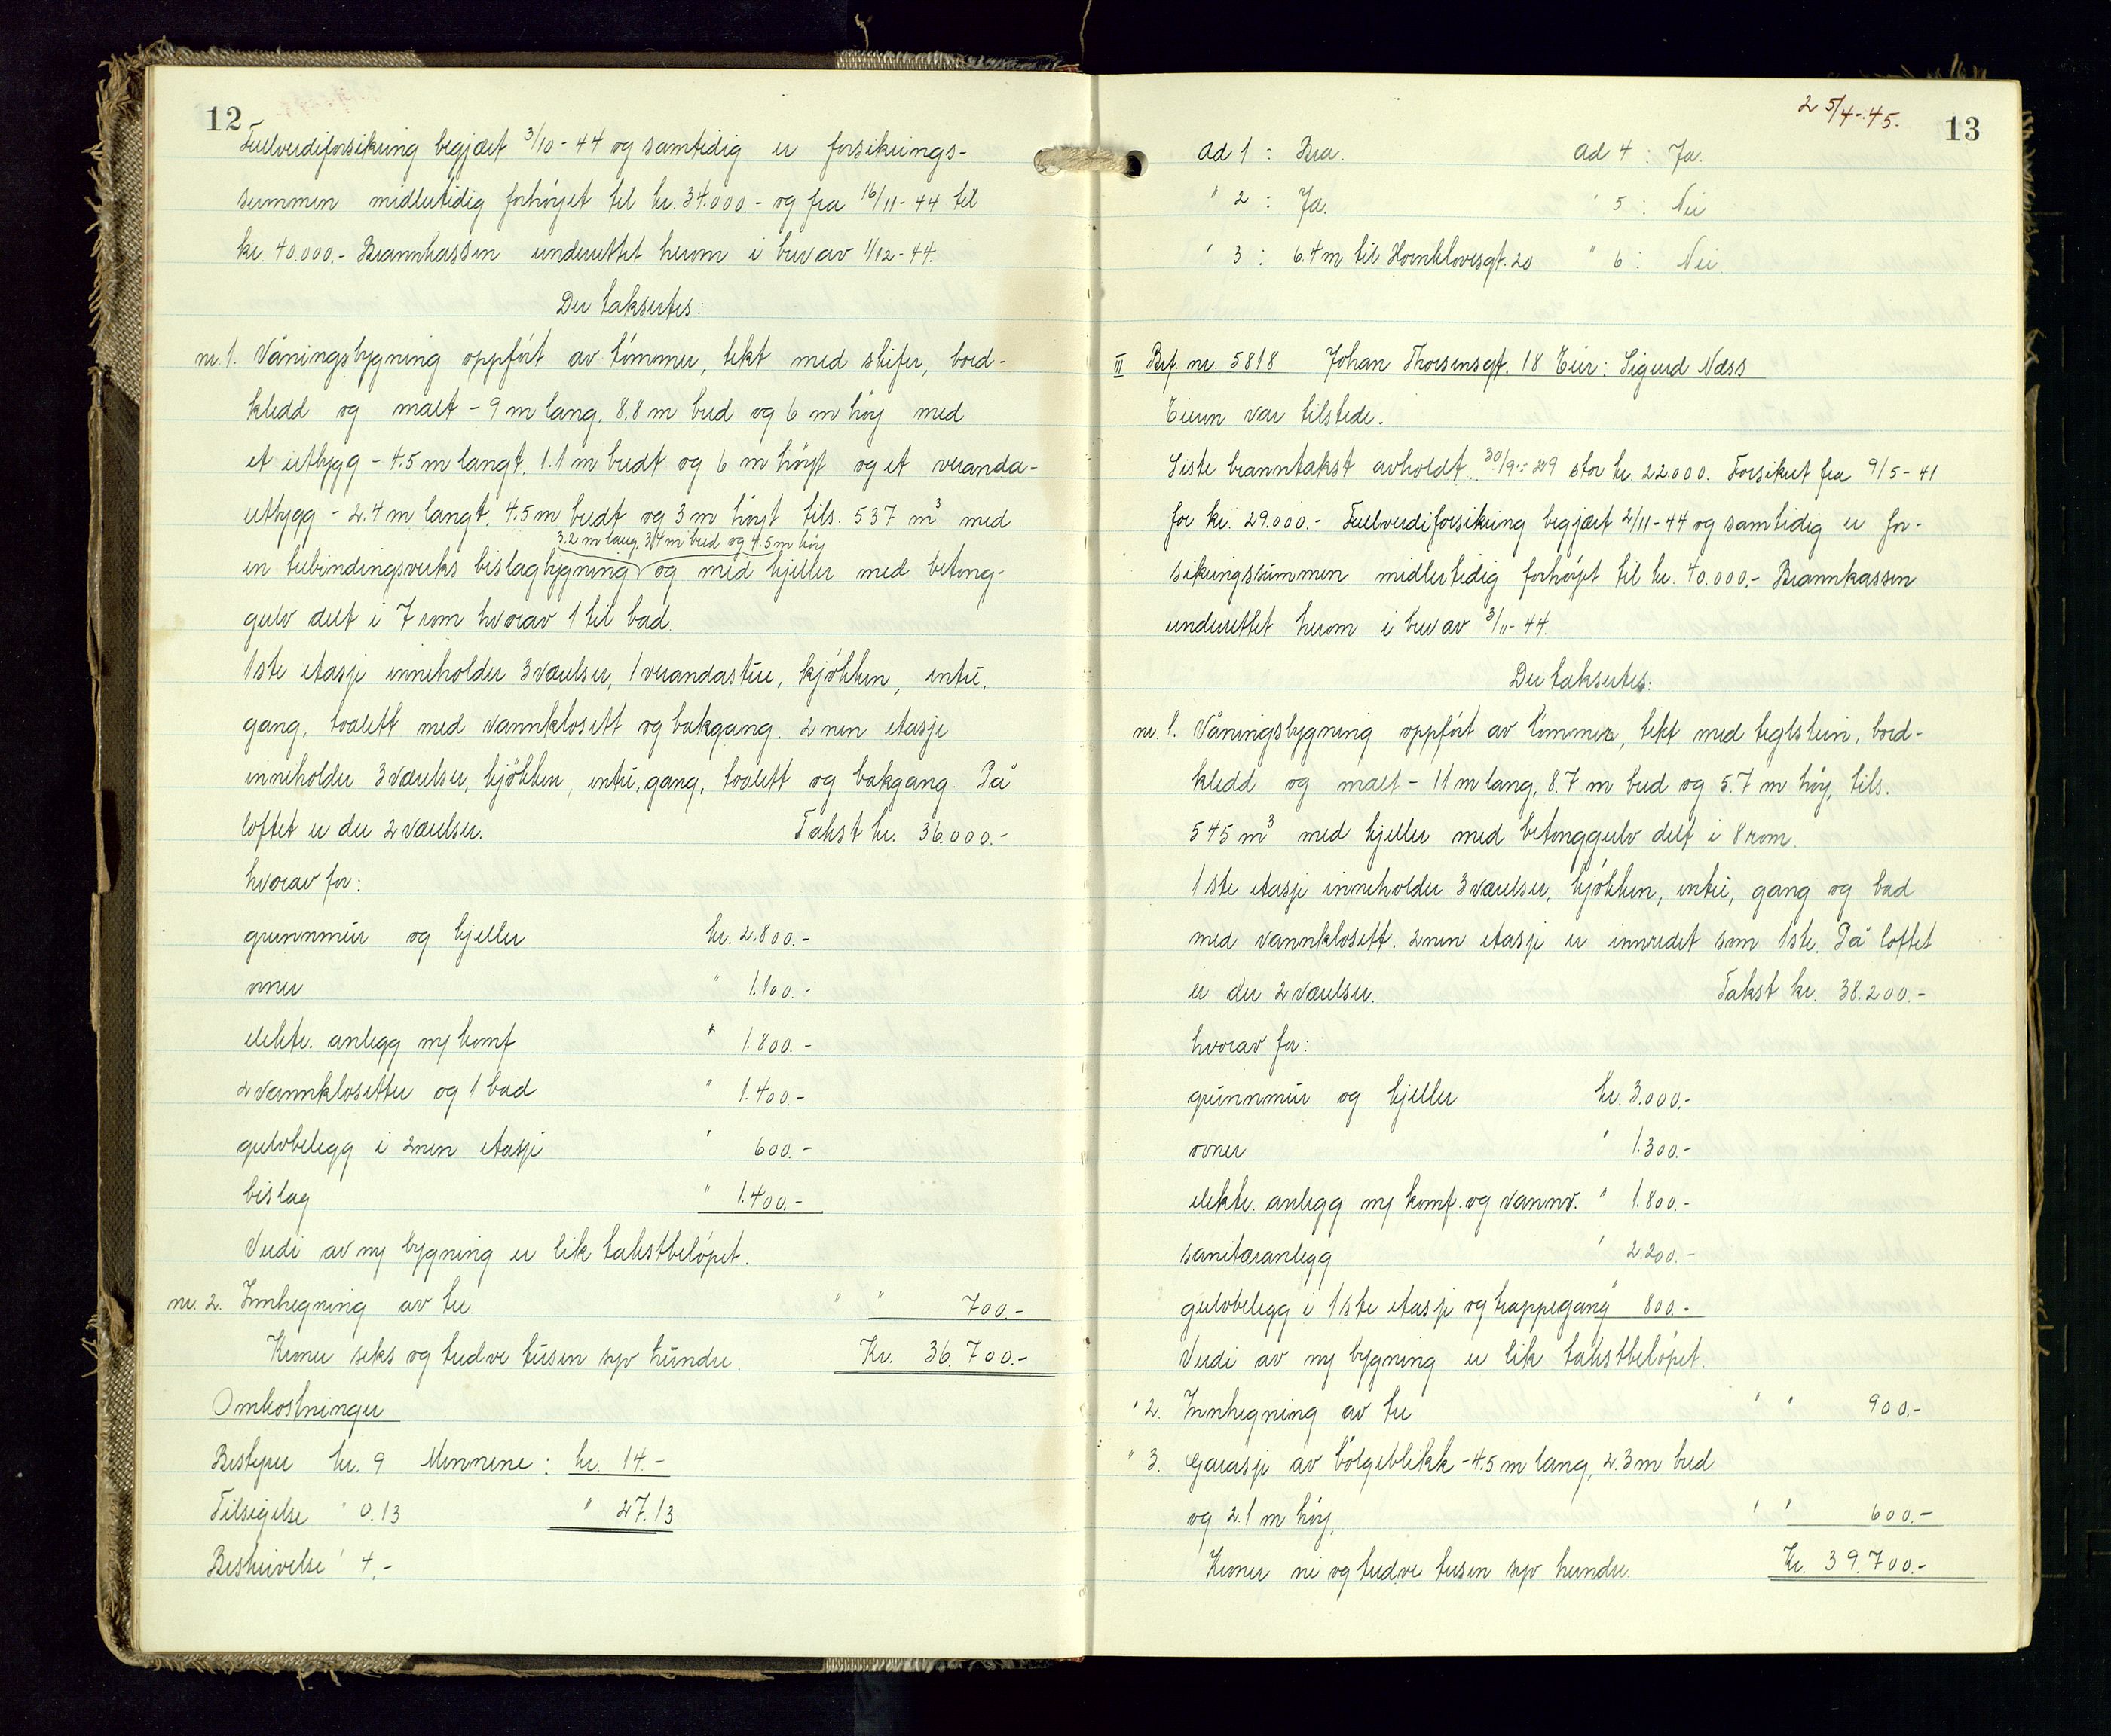 12
Fullverdiforsikring begjært 3/10-44 og samtidig er forsikrings-
summen midlertidig forhöyet til kr. 34.000.- og fra 16/11-44 til
kr. 40.000.- Brannkassen underrettet herom i brev av 1/12-44.
Der taksertes:
nr. 1. Våningsbygning oppfört av tömmer, tekt med skifer, bord-
kledd og malt - 9 m lang, 8.8 m bred og 6 m höy med
et utbygg - 4.5 m langt, 1.1 m bredt og 6 m höyt og et veranda-
utbygg - 2.4 m langt, 4.5 m bredt og 3 m höyt tils. 537 m³ med
3.2 m lang, 3.4 m bred og 4.5 m höy
en trebindingsverks bislagbygning og med kjeller med betong-
gulv delt i 7 rom hvorav 1 til bad.
1ste etasje inneholder 3 værelser, 1 verandastue, kjökken, entré,
gang, toalett med vannklosett og bakgang. 2nen etasje
inneholder 3 værelser, kjökken, entré, gang, toalett og bakgang. På
loftet er der 2 værelser. Takst kr. 36.000.-
hvorav for:
grunnmur og kjeller kr. 2.800.-
ovner " 1.100.-
elektr. anlegg m/ komf " 1.800.-
2 vannklosetter og 1 bad " 1.400.-
gulvbelegg i 2nen etasje " 600.-
bislag " 1.400.-
Verdi av ny bygning er lik takstbelöpet.
nr. 2. Innhegning av tre. " " 700.-
Kroner seks og tredve tusen syv hundre. Kr. 36.700.-
Omkostninger
Bestyrer kr. 9 Mennene: kr. 14.-
Tilsigelse " 0.13 " 27.13
Beskrivelse " 4.-
25/4-45.
13
Ad 1: Bra. Ad 4: Ja.
" 2: Ja. " 5: Nei
" 3: 6.4 m til Hornklovesgt. 20 " 6: Nei.
III Brf. nr. 5818 Johan Thorsensgt. 18 Eier: Sigurd Næss
Eieren var tilstede.
Siste branntakst avholdt 30/9-29 stor kr. 22.000. Forsikret fra 9/5-41
for kr. 29.000.- Fullverdiforsikring begjært 2/11-44 og samtidig er for-
sikringssummen midlertidig forhöyet til kr. 40.000.- Brannkassen
underrettet herom i brev av 3/11-44.
Der taksertes:
nr. 1. Våningsbygning oppfört av tömmer, tekt med teglstein, bord-
kledd og malt - 11 m lang, 8.7 m bred og 5.7 m höy, tils.
545 m³ med kjeller med betonggulv delt i 8 rom.
1ste etasje inneholder 3 værelser, kjökken, entré, gang og bad
med vannklosett. 2nen etasje er innredet som 1ste. På loftet
er der 2 værelser. Takst kr. 38.200.-
hvorav for:
grunnmur og kjeller kr. 3.000.-
ovner " 1.300.-
elektr. anlegg m/ komf. og vannv. " 1.800.-
sanitæranlegg " 2.200.-
gulvbelegg i 1ste etasje og trappegang " 800.-
Verdi av ny bygning er lik takstbelöpet.
" 2. Innhegning av tre " " 900.-
" 3. Garasje av bölgeblikk - 4.5 m lang, 2.3 m bred
og 2.1 m höy. " " 600.-
Kroner ni og tredve tusen syv hundre. Kr. 39.700.-